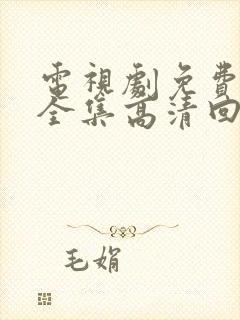 電視劇免費
全集高清回
毛娟